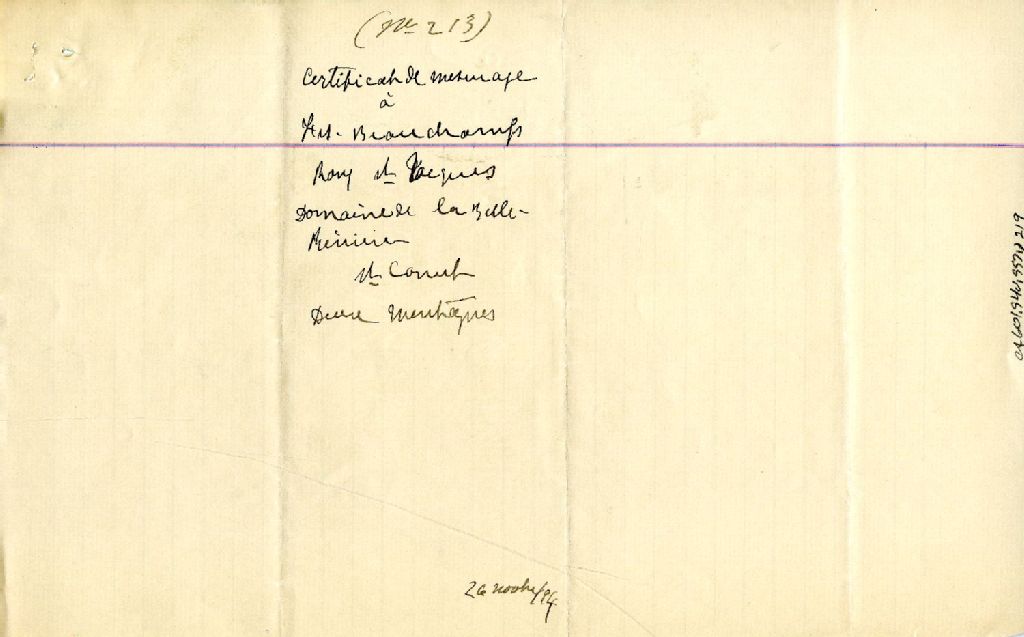 (No 213)
Certificat de mesurage
à
Beauchamps
Rang St Jacques
Domaine de la Belle-
Rivière
St Canut
Deux Montagnes
26 novbre/94